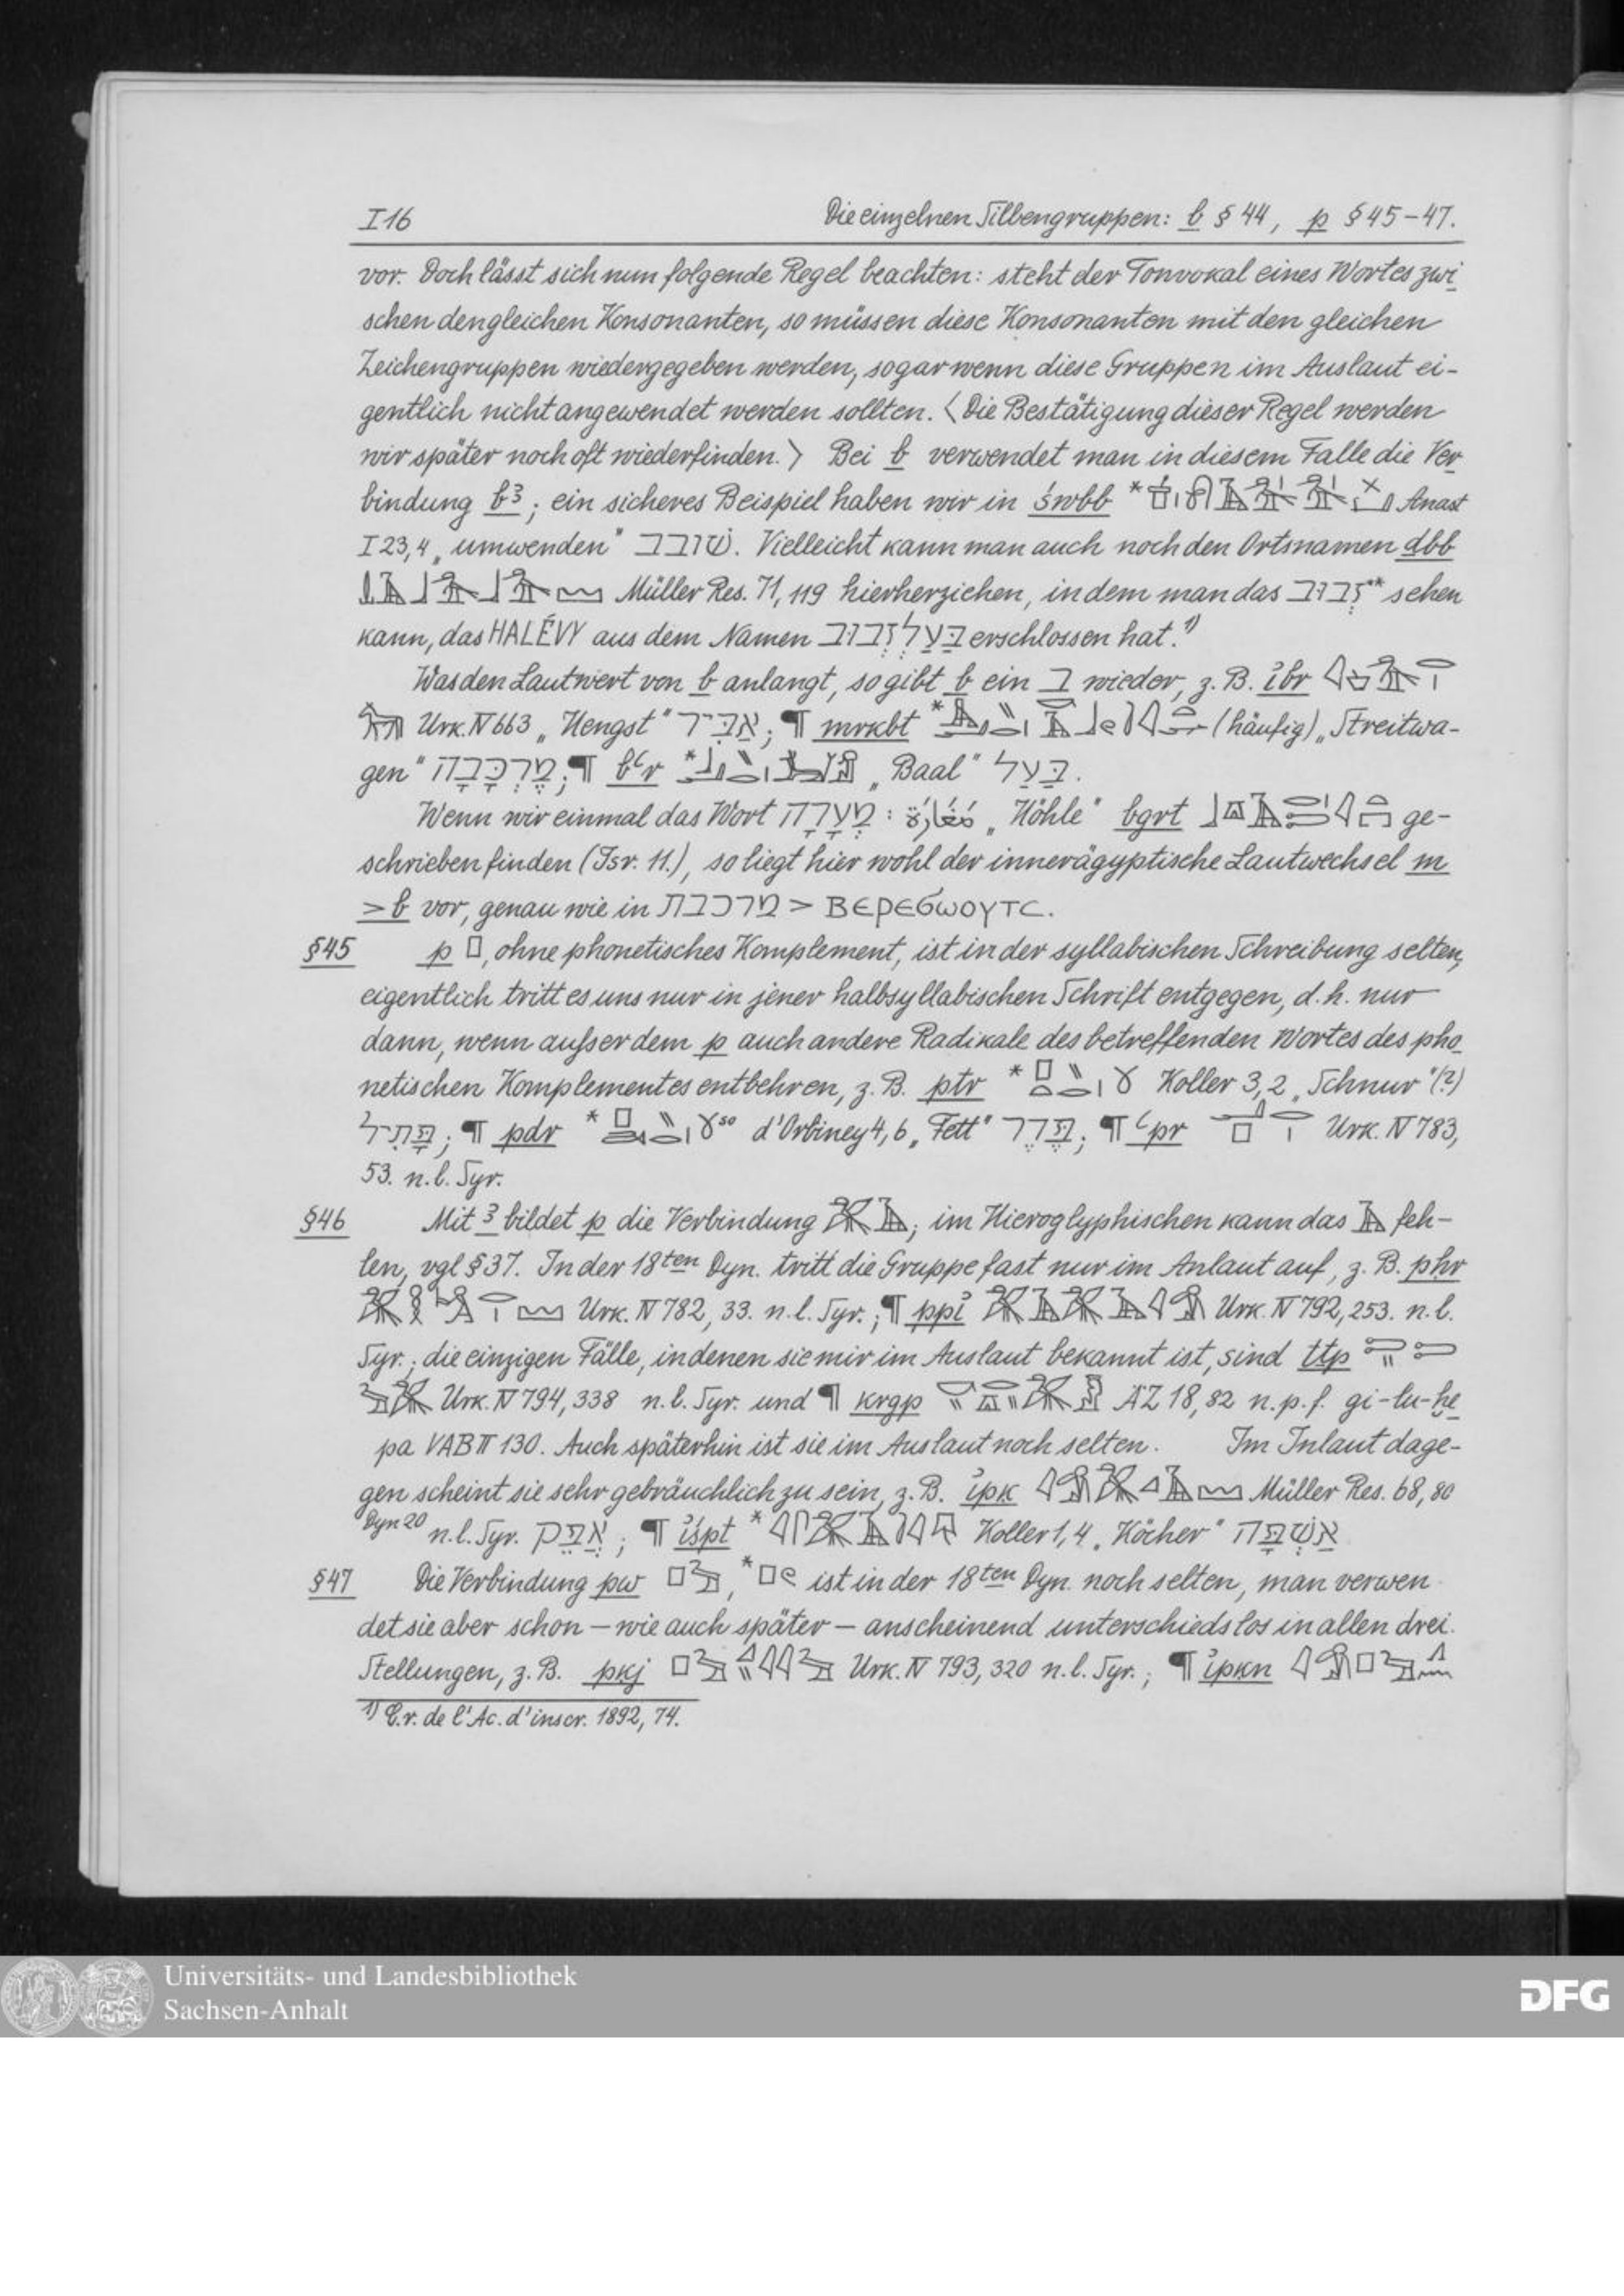 I 16 Die einzelnen Silbengruppen: b § 44, p § 45–47.
vor. Doch lässt sich nun folgende Regel beachten: steht der Tonvokal eines Wortes zwi-
schen den gleichen Konsonanten, so müssen diese Konsonanten mit den gleichen
Zeichengruppen wiedergegeben werden, sogar wenn diese Gruppen im Auslaut ei-
gentlich nicht angewendet werden sollten. ⟨Die Bestätigung dieser Regel werden
wir später noch oft wiederfinden.⟩ Bei b verwendet man in diesem Falle die Ver-
bindung bꜣ; ein sicheres Beispiel haben wir in św​bb * Anast
I 23,4 „umwenden" שׁובב. Vielleicht kann man auch noch den Ortsnamen dbb
Müller Res. 71, 119 hierherziehen, in dem man das זְבוּב** sehen
kann, das HALÉVY aus dem Namen בַּעַל זְבוּב erschlossen hat.¹⁾
Was den Lautwert von b anlangt, so gibt b ein ב wieder, z. B. ỉbr
Urk. IV 663 „Hengst" אַבִּיר; ¶ mrkbt * (häufig) „Streitwa-
gen" מֶרְכָּבָה; ¶ bꜥr * „Baal" בַּעַל.
Wenn wir einmal das Wort מְעָרָה : مَغَارَة „Höhle" bgrt ge-
schrieben finden (Isr. 11.), so liegt hier wohl der innerägyptische Lautwechsel m
> b vor, genau wie in מרכבת > ⲂⲈⲢⲈϬⲰⲞⲨⲦⲤ.
§45 p 𓊪, ohne phonetisches Komplement, ist in der syllabischen Schreibung selten,
eigentlich tritt es uns nur in jener halbsyllabischen Schrift entgegen, d. h. nur
dann, wenn außer dem p auch andere Radikale des betreffenden Wortes des pho-
netischen Komplementes entbehren, z. B. ptr * Koller 3,2 „Schnur"(?)
פָּתִיל; ¶ pdr * so d'Orbiney 4,6 „Fett" פֶּדֶר; ¶ ꜥpr Urk. IV 783,
53. n. l. Syr.
§46 Mit ꜣ bildet p die Verbindung 𓅮𓄿; im Hieroglyphischen kann das 𓄿 feh-
len, vgl § 37. In der 18ten Dyn. tritt die Gruppe fast nur im Anlaut auf, z. B. pḥr
Urk. IV 782, 33. n. l. Syr.; ¶ ppỉ Urk. IV 792, 253. n. l.
Syr.; die einzigen Fälle, in denen sie mir im Auslaut bekannt ist, sind ṯṯp
Urk. IV 794, 338 n. l. Syr. und ¶ krgp ÄZ 18, 82 n. p. f. gi-lu-ḫe-
pa VAB II 130. Auch späterhin ist sie im Auslaut noch selten. Im Inlaut dage-
gen scheint sie sehr gebräuchlich zu sein, z. B. ỉpk Müller Res. 68, 80
Dyn 20 n. l. Syr. אֲפֵק; ¶ ỉśpt * Koller 1,4 „Köcher" אַשְׁפָּה
§47 Die Verbindung pw 𓊪𓅱, *𓊪𓏲 ist in der 18ten Dyn. noch selten, man verwen
det sie aber schon – wie auch später – anscheinend unterschiedslos in allen drei
Stellungen, z. B. pkj Urk. IV 793, 320 n. l. Syr.; ¶ ỉpkn
¹⁾ C. r. de l'Ac. d'inscr. 1892, 74.
Universitäts- und Landesbibliothek
Sachsen-Anhalt
DFG